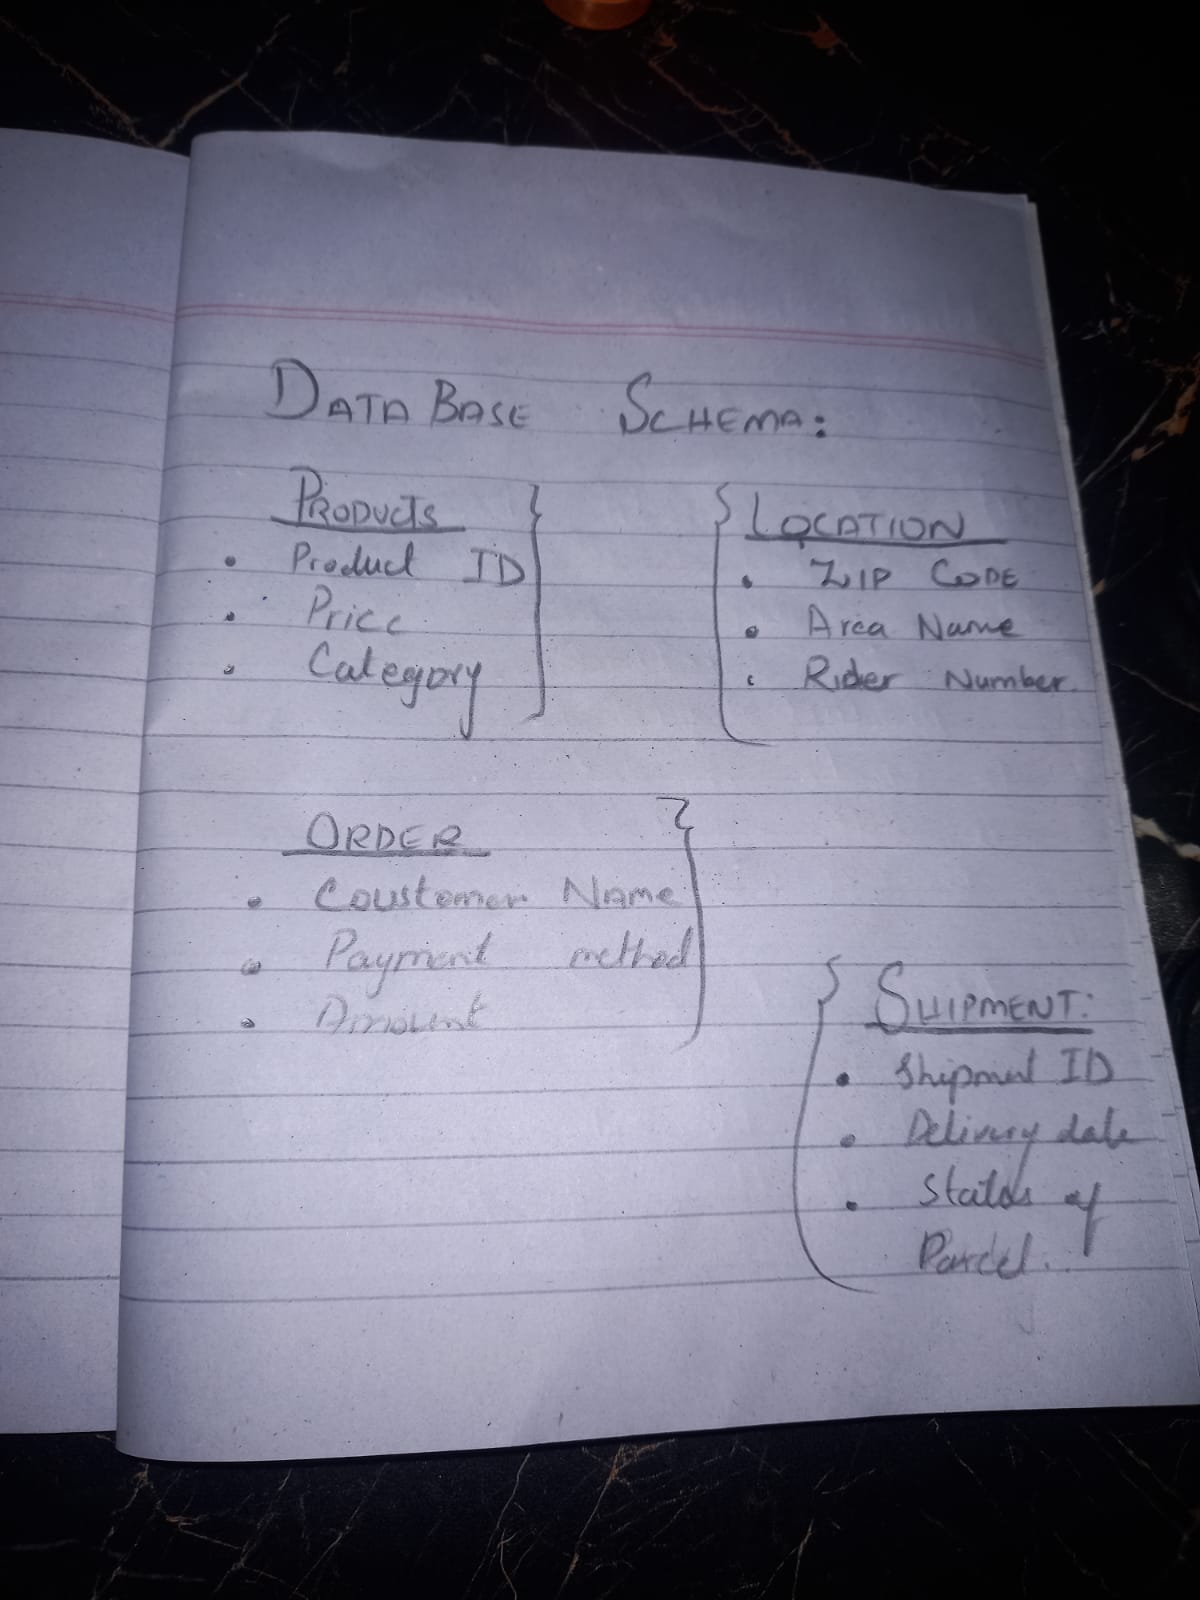 DATA BASE SCHEMA:
PRODUCTS
• Product ID
• Price
• Category
LOCATION
• ZIP CODE
• Area Name
• Rider Number
ORDER
• Coustomer Name
• Payment method
• Amount
SHIPMENT:
• Shipment ID
• Delivery date
• Status of
Parcel.